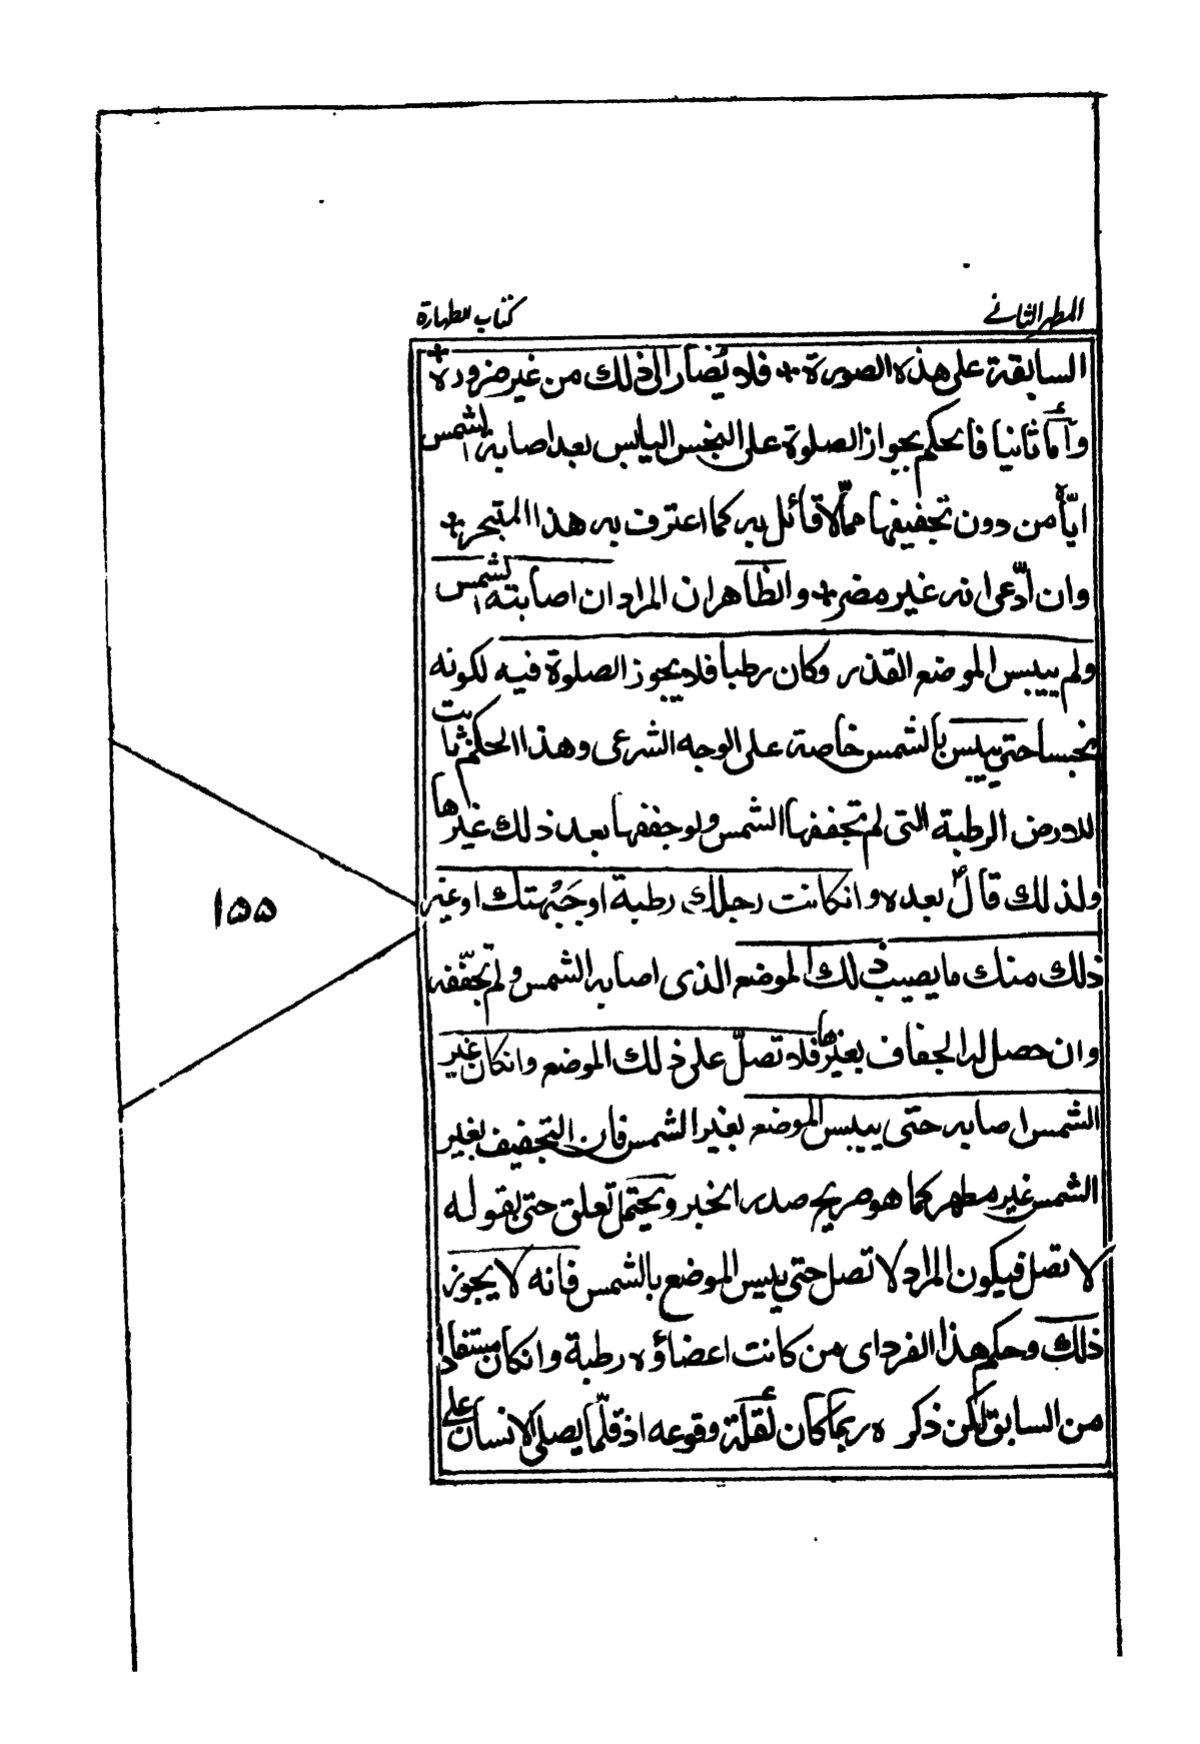 المطهر الثاني
كتاب الطهارة
السابقة على هذه الصورة + فلا يُصار الى ذلك من غير ضرورة +
وأمّا ثانيا فالحكم بجواز الصلوة على النجس اليابس بعد اصابة الشمس
ايّاه من دون تجفيفها ممّا لا قائل به كما اعترف به هذا المتبحر +
وان ادّعى انه غير مضر + والظاهر ان المراد ان اصابته الشمس
ولم ييبس الموضع القذر وكان رطبا فلا يجوز الصلوة فيه لكونه
نجسا حتى ييبس بالشمس خاصة على الوجه الشرعى وهذا الحكم ثابت
للارض الرطبة التى لم تجففها الشمس ولو جففها بعد ذلك غيرها
ولذلك قال بعده وانكانت رجلك رطبة او جَبْهتك او غير
ذلك منك ما يصيب ذلك الموضع الذى اصابه الشمس ولم تجفّفه
وان حصل له الجفاف بغيرها فلا تصلّ على ذلك الموضع وانكان غير
الشمس اصابه حتى ييبس الموضع بغير الشمس فان التجفيف بغير
الشمس غير مطهر كما هو صريح صدر الخبر ويحتمل تعلق حتى بقوله
لا تصل فيكون المراد لا تصل حتى ييبس الموضع بالشمس فانه لا يجوز
ذلك وحكم هذا الفرد اى من كانت اعضاؤه رطبة وانكان مستفادا
من السابق لكن ذكره ربما كان لقلة وقوعه اذ قلّما يصلى الانسان على
١٥٥